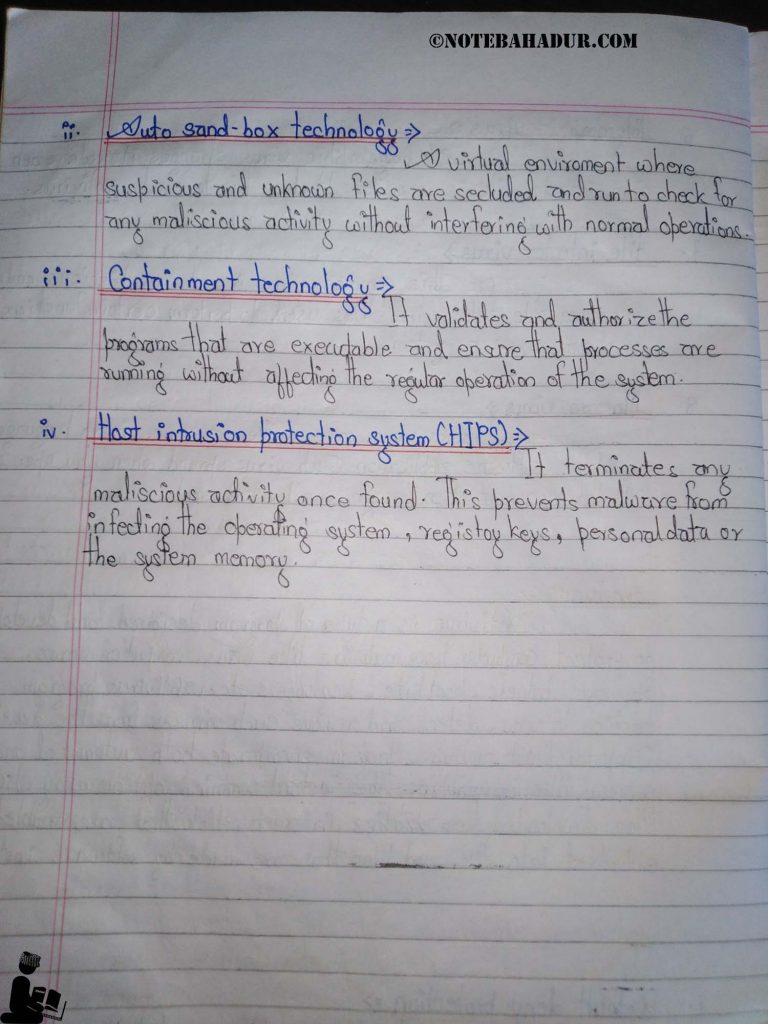 ©NOTEBAHADUR.COM
ii. Auto sand-box technology⇒
A virtual enviroment where
suspicious and unknown files are secluded and run to check for
any maliscious activity without interfering with normal operations.
iii. Containment technology⇒
It validates and authorize the
programs that are executable and ensure that processes are
running without affecting the regular operation of the system.
iv. Host intrusion protection system (HIPS)⇒
It terminates any
maliscious activity once found. This prevents malware from
infecting the operating system, registoy keys, personal data or
the system memory.